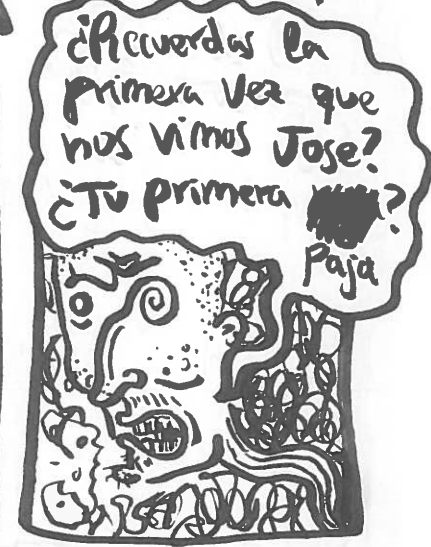 ¿Recuerdas la
primera vez que
nos vimos Jose?
¿Tu primera ?
paja